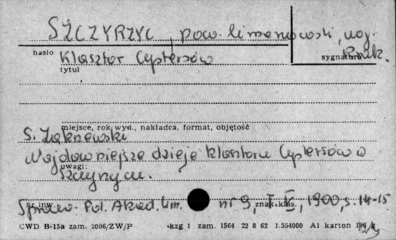 SZCZYRZYC, pow. limanowski, woj. Krak.
hasło Klasztor Cystersów sygnatura
tytuł
miejsce, rok wyd., nakładca, format, objętość
S. Zakrzewski
Najdawniejsze dzieje klasztoru Cystersów w
uwagi:
Szczyrzycu.
Sprawo. Pol. Akad. Um. nr 9, znak klas. 1900, s. 14-15
CWD B-15a zam. 2006/ZW/P kzg 1 zam. 1564 22 8 62 1.554000 A1 karton